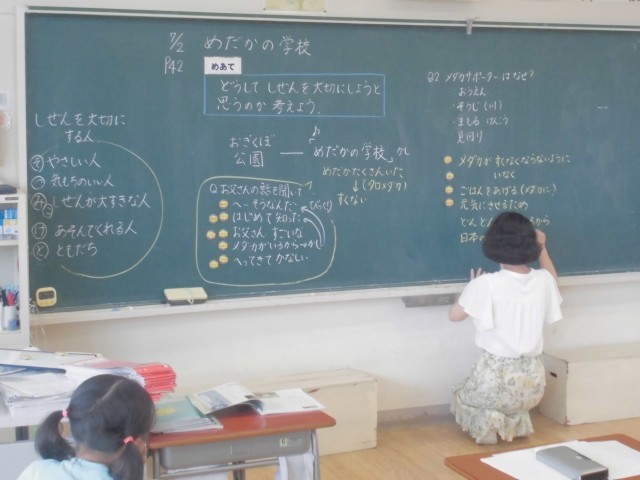 7/2 めだかの学校
P42 めあて
どうして しぜんを大切にしようと
思うのか 考えよう。
しぜんを大切に
する人
やさしい人
気もちのいい人
しぜんが大すきな人
あそんでくれる人
ともだち
おぎくぼ
公園 — めだかの学校
めだかたくさんいた
↓(クロメダカ)
すくない
Q お父さんの話を聞いて
へーそうなんだ びっくり
はじめて知った
お父さん すごいな
メダカがいるから
へってきて かなしい
Q2 メダカサポーターはなぜ?
・おうえん
・そうじ(川)
見回り
メダカが すくなくならないように
いなく
ごはんをあげる(メダカに)
元気にさせるため
どんどん から
日本